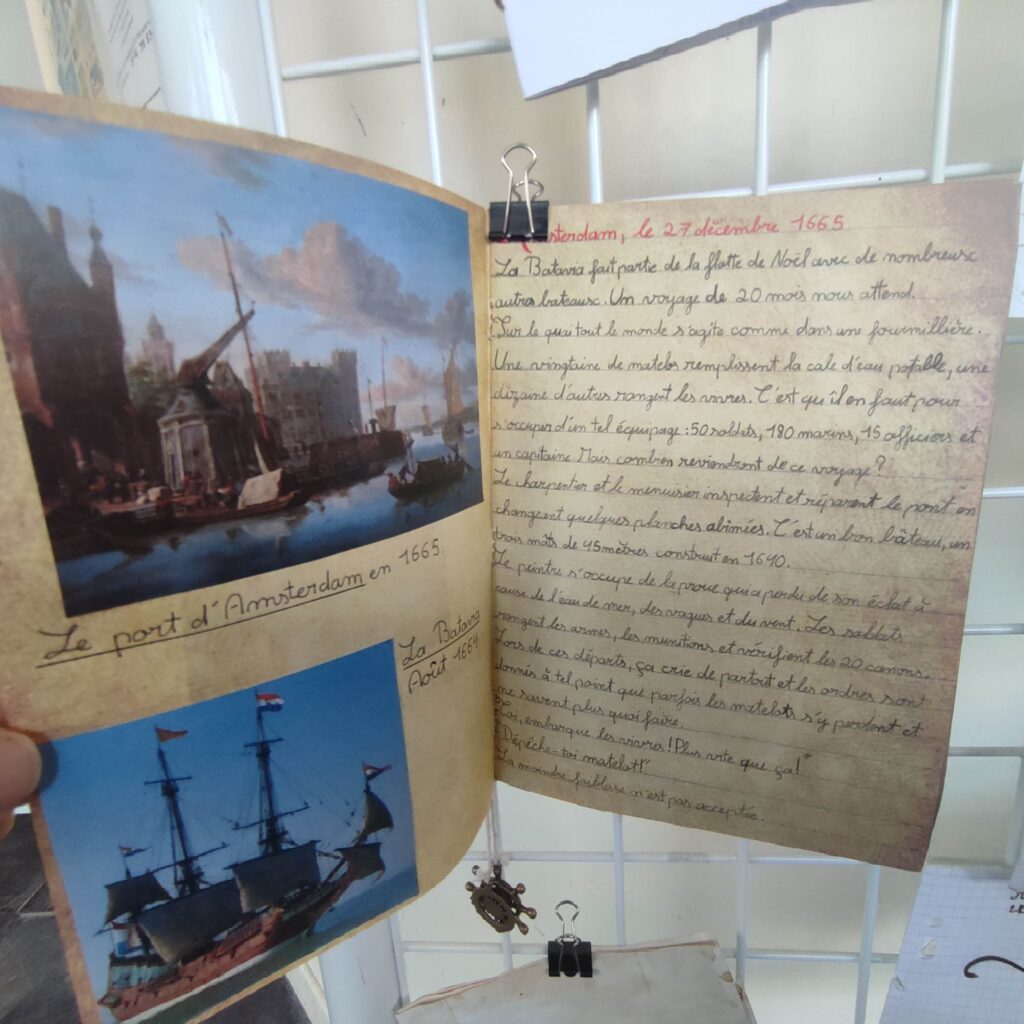 Le port d'Amsterdam en 1665.
La Batavia
Août 1664
Amsterdam, le 27 décembre 1665
La Batavia fait partie de la flotte de Noël avec de nombreusc
autres bateausc. Un voyage de 20 mois nous attend.
Sur le quai tout le monde s'agite comme dans une fourmillière.
Une vingtaine de matelos remplissent la cale d'eau potable, une
dizaine d'autres rangent les vivres. C'est qu'il en faut pour
s'occuper d'un tel équipage : 50 soldats, 180 marins, 15 officiers et
un capitaine. Mais combien reviendront de ce voyage ?
Le charpentier et le menuisier inspectent et réparent le pont en
changeant quelques planches abimées. C'est un bon bâteau, un
trois mâts de 45 mètres construit en 1640.
Le peintre s'occupe de la proue qui a perdu de son éclat à
cause de l'eau de mer, des vagues et du vent. Les soldats
rangent les armes, les munitions et vérifient les 20 canons.
Lors de ces départs, ça crie de partout et les ordres sont
donnés à tel point que parfois les matelots s'y perdent et
ne savent plus quoi faire.
"Toi, embarque les vivres ! Plus vite que ça !"
"Dépêche-toi matelot !"
La moindre faiblesse n'est pas acceptée.